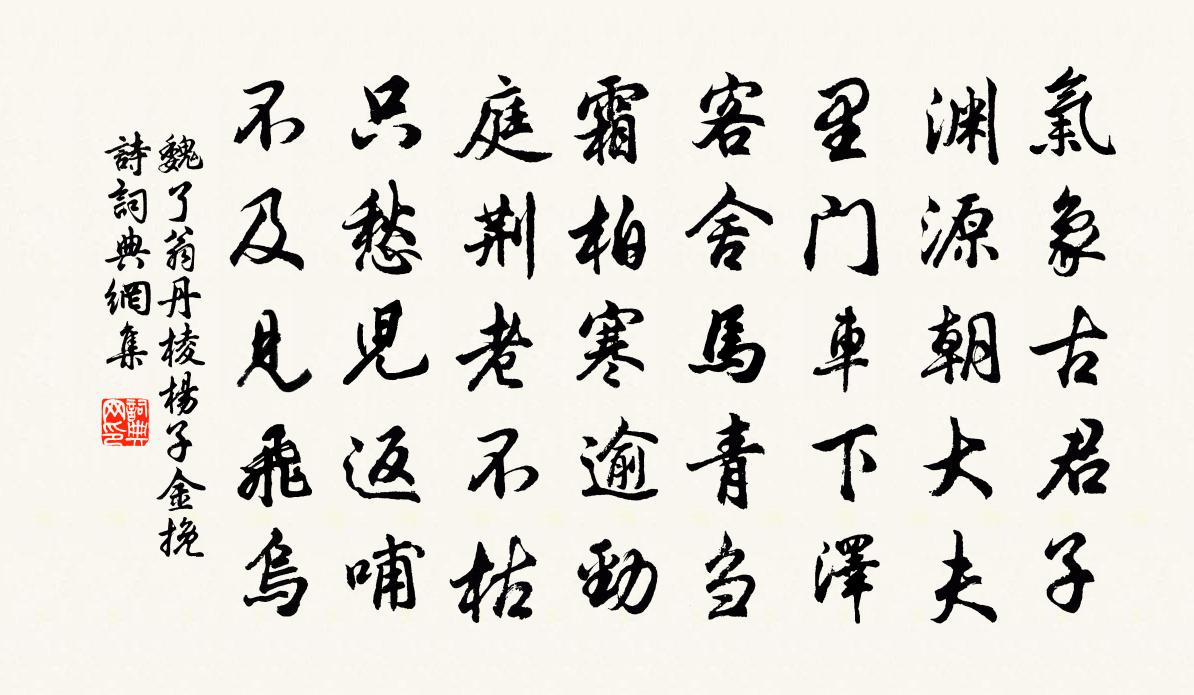 氣象古君子
淵源朝大夫
里門車下澤
客舍馬青芻
霜柏寒逾勁
庭荆老不枯
只愁児返哺
不及見飛烏
魏了翁丹棱楊子金挽
詩詞典網集
詞典
网印